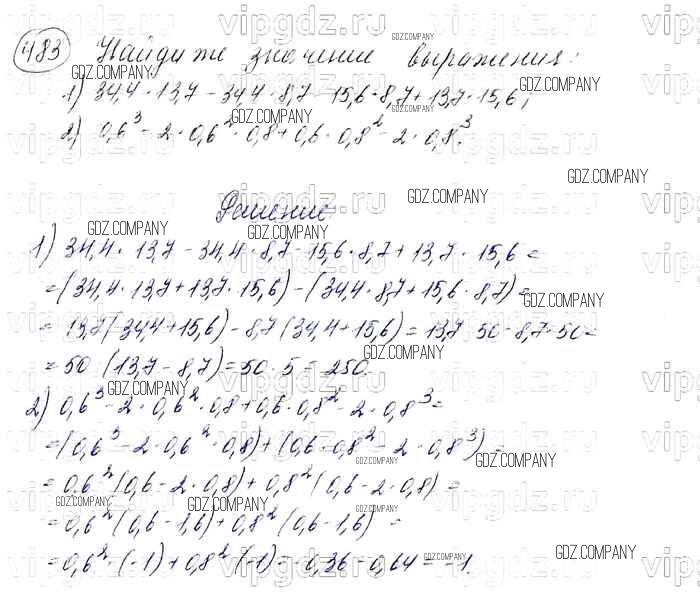 483 Найдите значение выражения:
1) 34,4 · 13,7 - 34,4 · 8,7 - 15,6 · 8,7 + 13,7 · 15,6;
2) 0,6³ - 2 · 0,6² · 0,8 + 0,6 · 0,8² - 2 · 0,8³.
Решение
1) 34,4 · 13,7 - 34,4 · 8,7 - 15,6 · 8,7 + 13,7 · 15,6 =
= (34,4 · 13,7 + 13,7 · 15,6) - (34,4 · 8,7 + 15,6 · 8,7) =
= 13,7 (34,4 + 15,6) - 8,7 (34,4 + 15,6) = 13,7 · 50 - 8,7 · 50 =
= 50 (13,7 - 8,7) = 50 · 5 = 250.
2) 0,6³ - 2 · 0,6² · 0,8 + 0,6 · 0,8² - 2 · 0,8³ =
= (0,6³ - 2 · 0,6² · 0,8) + (0,6 · 0,8² - 2 · 0,8³) =
= 0,6² (0,6 - 2 · 0,8) + 0,8² (0,6 - 2 · 0,8) =
= 0,6² (0,6 - 1,6) + 0,8² (0,6 - 1,6) =
= 0,6² · (-1) + 0,8² · (-1) = -0,36 - 0,64 = -1.
vipgdz.ru
GDZ.COMPANY